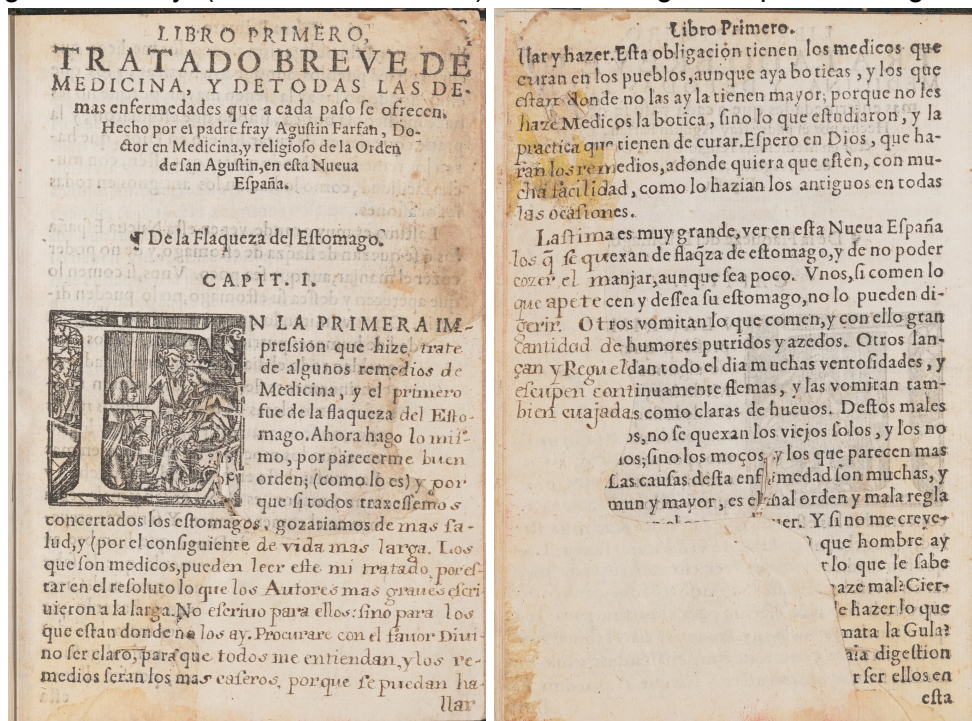 LIBRO PRIMERO,
TRATADO BREVE DE
MEDICINA, Y DETODAS LAS DE-
mas enfermedades que a cada paſo ſe ofrecen.
Hecho por el padre fray Aguſtin Farfan, Do-
ctor en Medicina,y religioſo de la Orden
de ſan Aguſtin,en eſta Nueua
Eſpaña.
¶ De la Flaqueza del Eſtomago.
CAPIT. I.
EN LA PRIMERA IM-
preſsion que hize, trate
de algunos remedios de
Medicina, y el primero
fue de la flaqueza del Eſto-
mago.Ahora hago lo miſ-
mo, por parecerme buen
orden; (como lo es) y por
que ſi todos traxeſſemos
concertados los eſtomagos, gozariamos de mas ſa-
lud,y (por el conſiguiente de vida mas larga. Los
que ſon medicos,pueden leer eſte mi tratado, por eſ-
tar en el reſoluto lo que los Autores mas graues eſcri
uieron a la larga.No eſcriuo para ellos: ſino para los
que eſtan donde no los ay. Procurare con el fauor Diui-
no ſer claro, para que todos me entiendan, y los re-
medios ſeran los mas caſeros, porque ſe puedan ha-
llar
Libro Primero.
llar y hazer.Eſta obligación tienen los medicos que
curan en los pueblos,aunque aya boticas , y los que
eſtan donde no las ay la tienen mayor; porque no les
haze Medicos la botica , ſino lo que eſtudiaron, y la
practica que tienen de curar.Eſpero en Dios , que ha-
ran los remedios,adonde quiera que eſtèn, con mu-
cha facilidad, como lo hazian los antiguos en todas
las ocaſiones.
Laſtima es muy grande,ver en eſta Nueua Eſpaña
los q̃ ſe quexan de flaq̃za de eſtomago,y de no poder
cozer el manjar,aunque ſea poco. Vnos,ſi comen lo
que apetecen y deſſea ſu eſtomago,no lo pueden di-
gerir. Otros vomitan lo que comen,y con ello gran
cantidad de humores putridos y azedos. Otros lan-
çan y Regueldan todo el dia muchas ventoſidades , y
eſcupen continuamente flemas, y las vomitan tam-
bien cuajadas como claras de hueuos. Deſtos males
os,no ſe quexan los viejos ſolos , y los no
ios;ſino los moços, y los que parecen mas
Las cauſas deſta enfermedad ſon muchas, y
mun y mayor, es el mal orden y mala regla
uer. Y ſi no me creye-
que hombre ay
r lo que le ſabe
haze mal? Cier-
e hazer lo que
mata la Gula?
digeſtion
r ſer ellos en
eſta